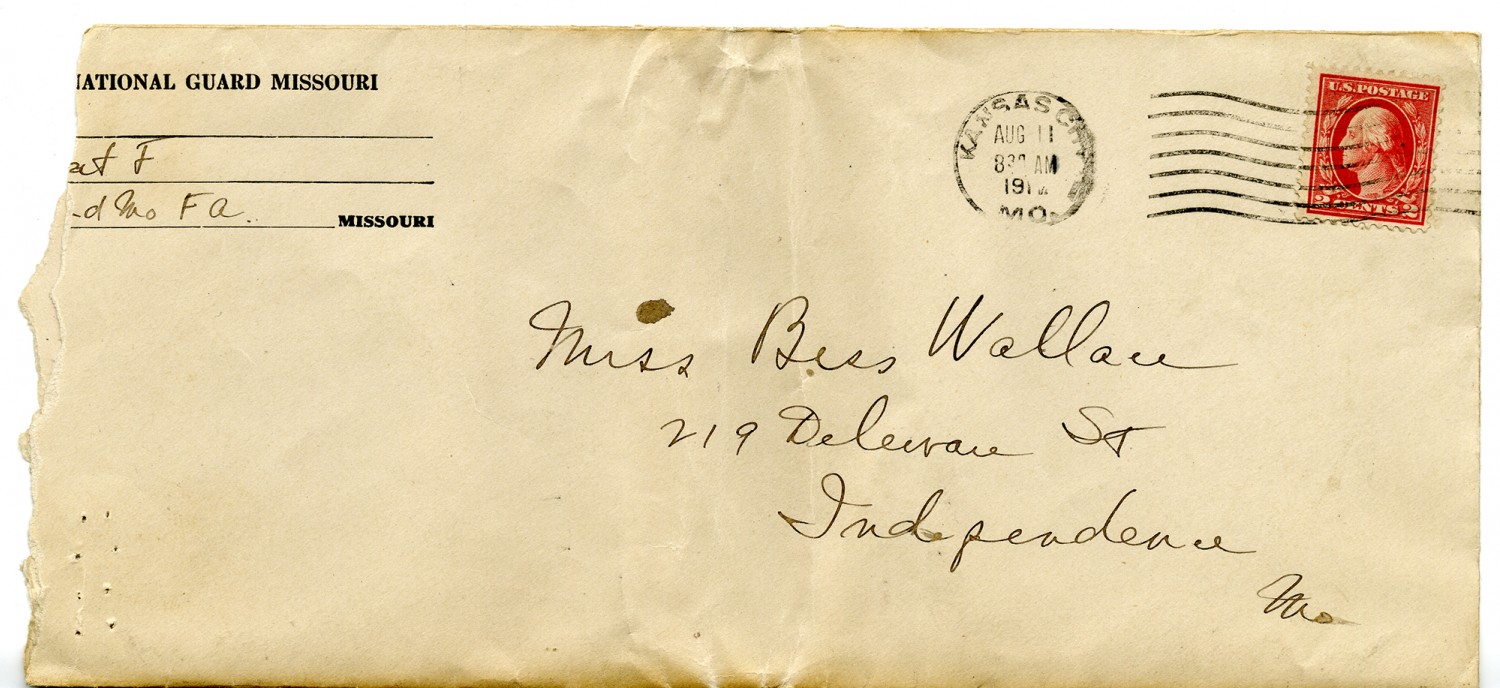 NATIONAL GUARD MISSOURI
F
Mo F A.
MISSOURI
KANSAS CITY
AUG 11
830 AM
MO.
U.S. POSTAGE
2 CENTS 2
Miss Bess Wallace
219 Deleware St
Independence
Mo